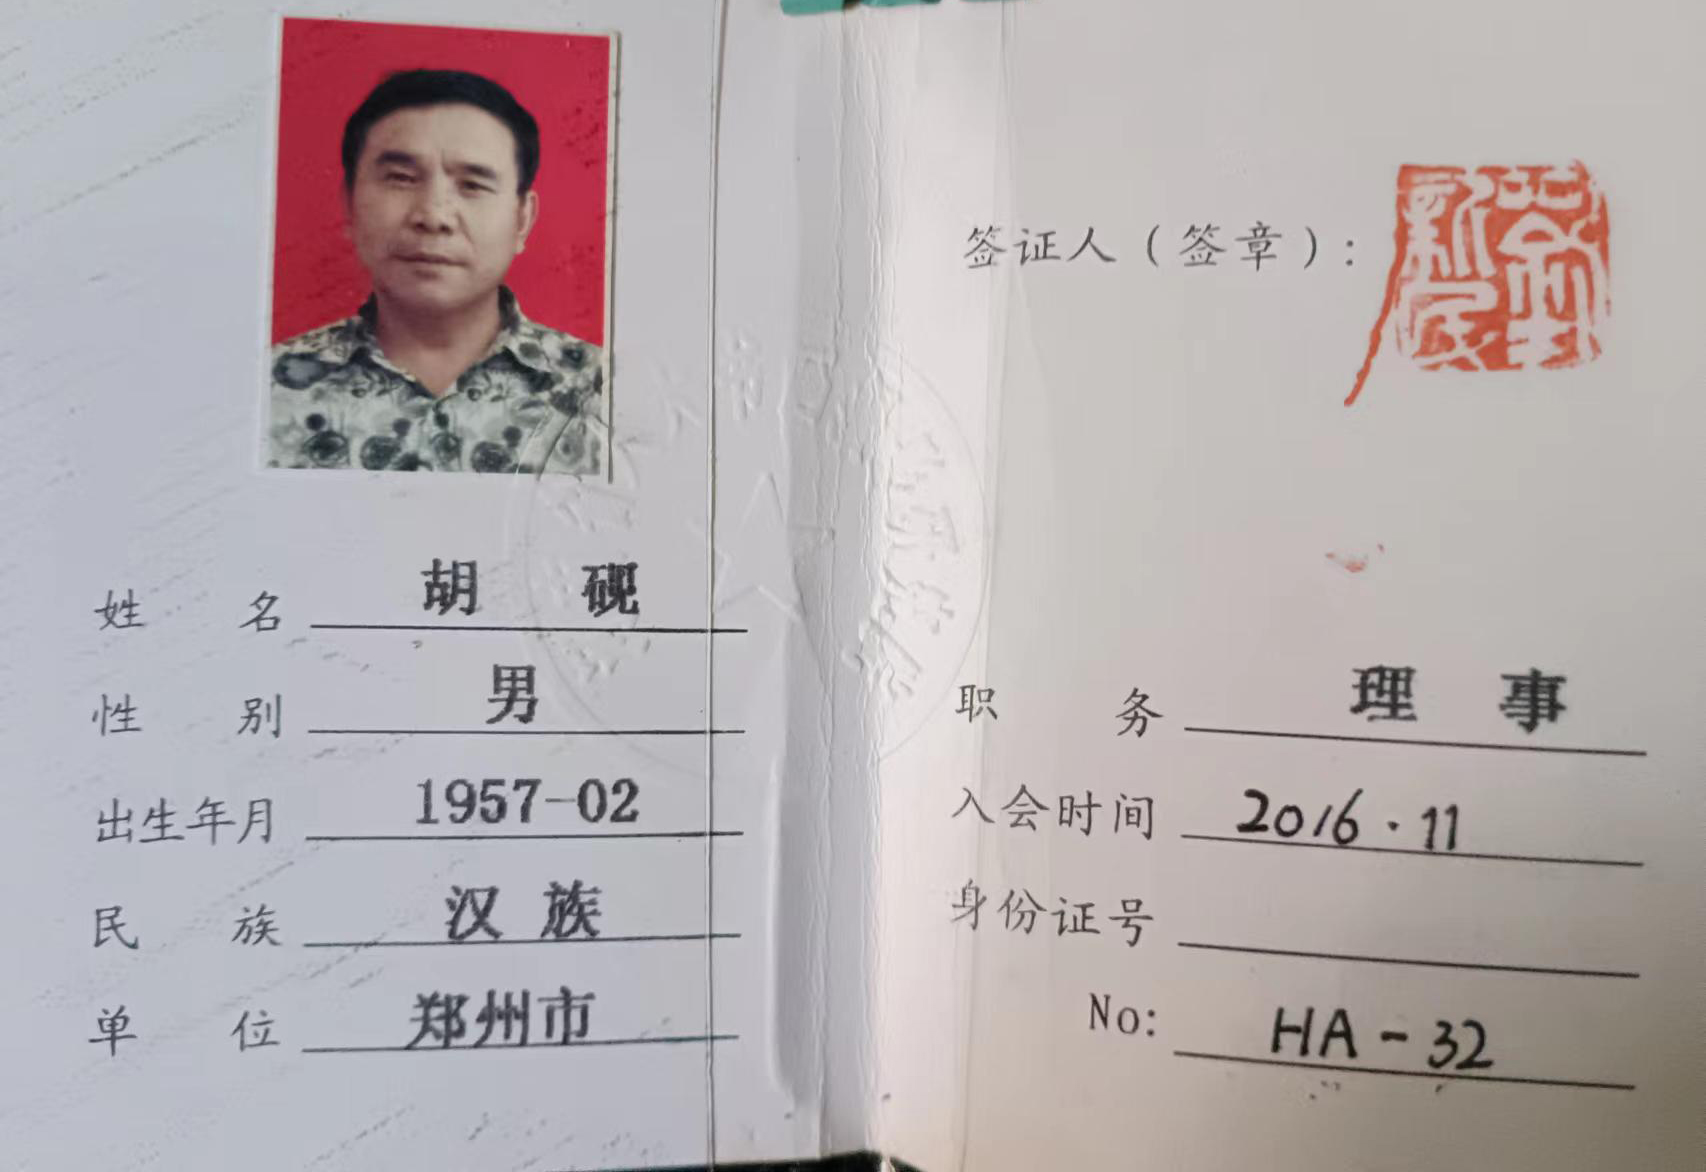 姓名 胡砚
性别 男
出生年月 1957-02
民族 汉族
单位 郑州市
签证人（签章）：
职务 理事
入会时间 2016·11
身份证号
No: HA-32